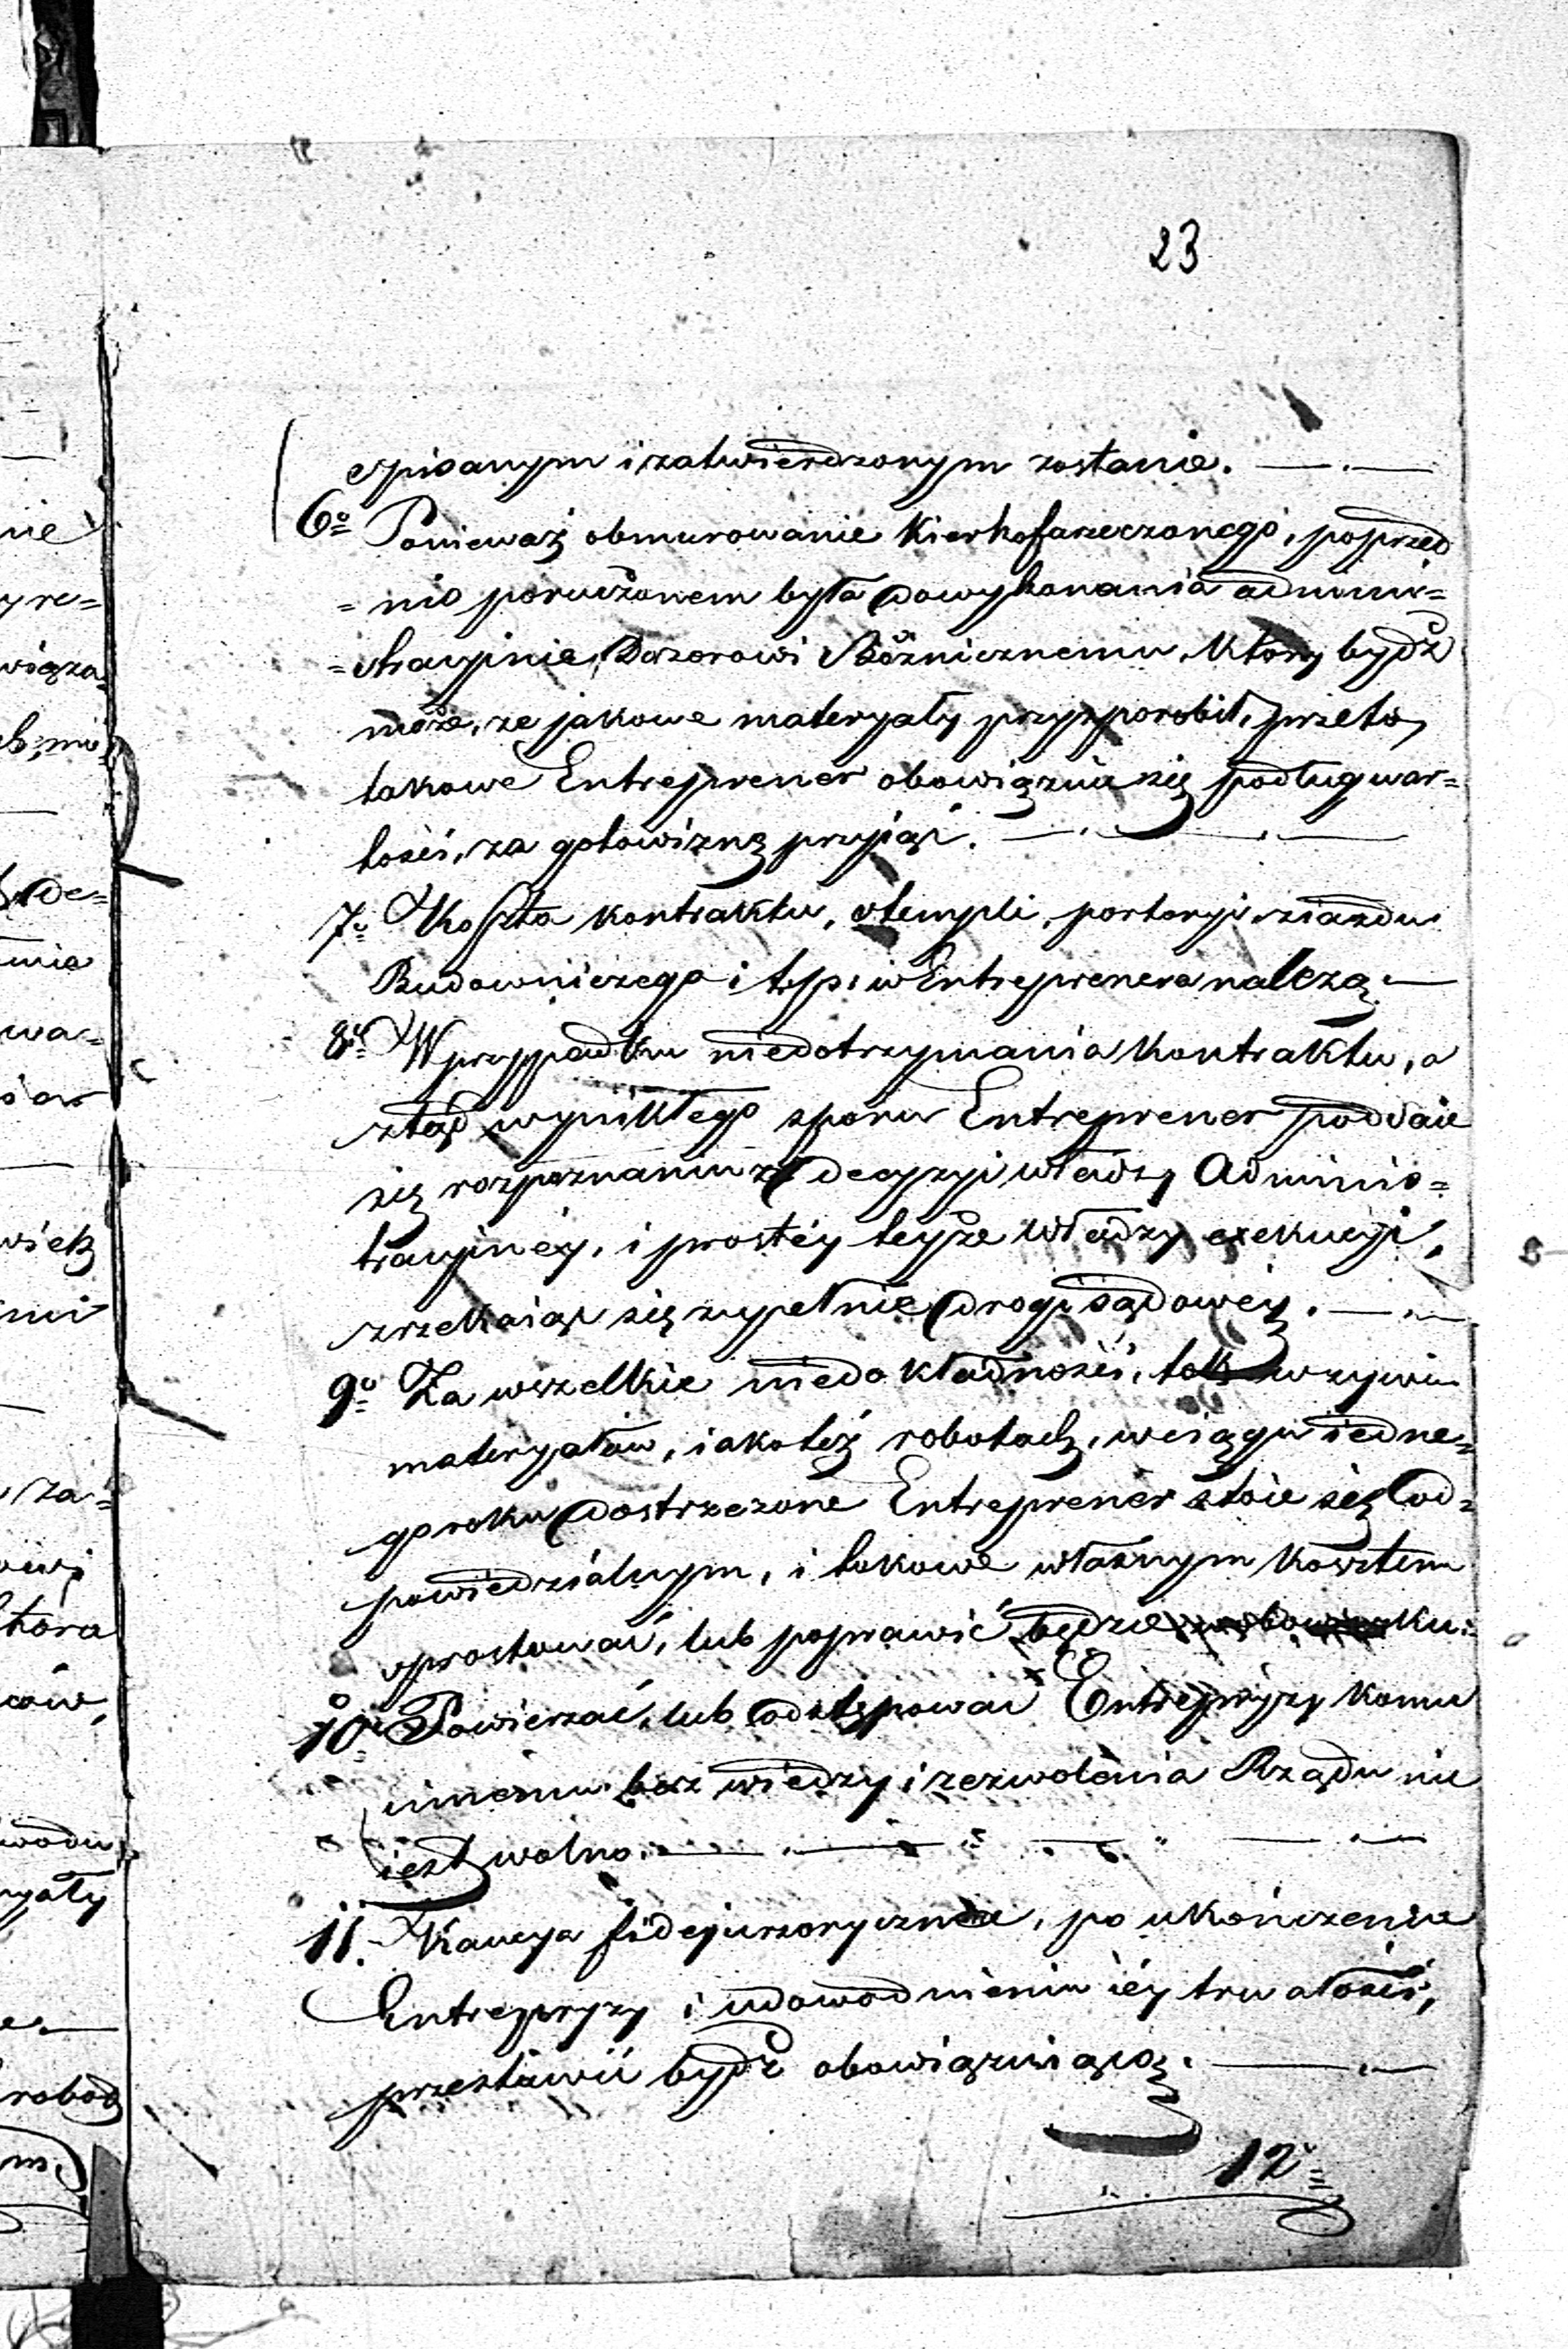 23
spisanym i zatwierdzonym zostanie. —.—
6o Ponieważ obmurowanie Kierhofa rzeczonego, poprzed
= nio poruczonem było do wykonania adminis=
= tracyjnie, Dozorowi Bóżnicznemu, który bydź
może, że jakowe materyały przysporobił, przeto
takowe Entreprener obowiązuie się podług war=
tości, za gotowiznę przyjąć. —.—.—
7o Koszta kontraktu, stempli, portoryi, ziazdu
Budowniczego i t. p. Entreprenera należą. —
8o W przypadku niedotrzymania Kontraktu, a
ztąd wynikłego sporu Entreprener poddaie
się rozpoznaniu i decyzyi władzy Adminis=
tracyinéy, i prostéy teyże władzy exekucyi,
zrzekaiąc się zupełnie drogi sądowéy. —.—
9o Za wszelkie niedokładności, tak w użyciu
materyałów, iakoteż robotach, w ciągu iedne=
go roku dostrzeżone Entreprener staie się od=
powiedzialnym, i takowe własnym kosztem
sprostować, lub poprawić będzie w obowiązku.
10o Powierzać, lub odstępować Entrepryzy komu
innemu bez wiedzy i zezwolenia Rządu nie
iest wolno. —.—
11. Kaucya fidejussoryczna, po ukończeniu
Entrepryzy i udowodnieniu iéy trwałości,
przestanie bydź obowiązuiącą. —.—
12o